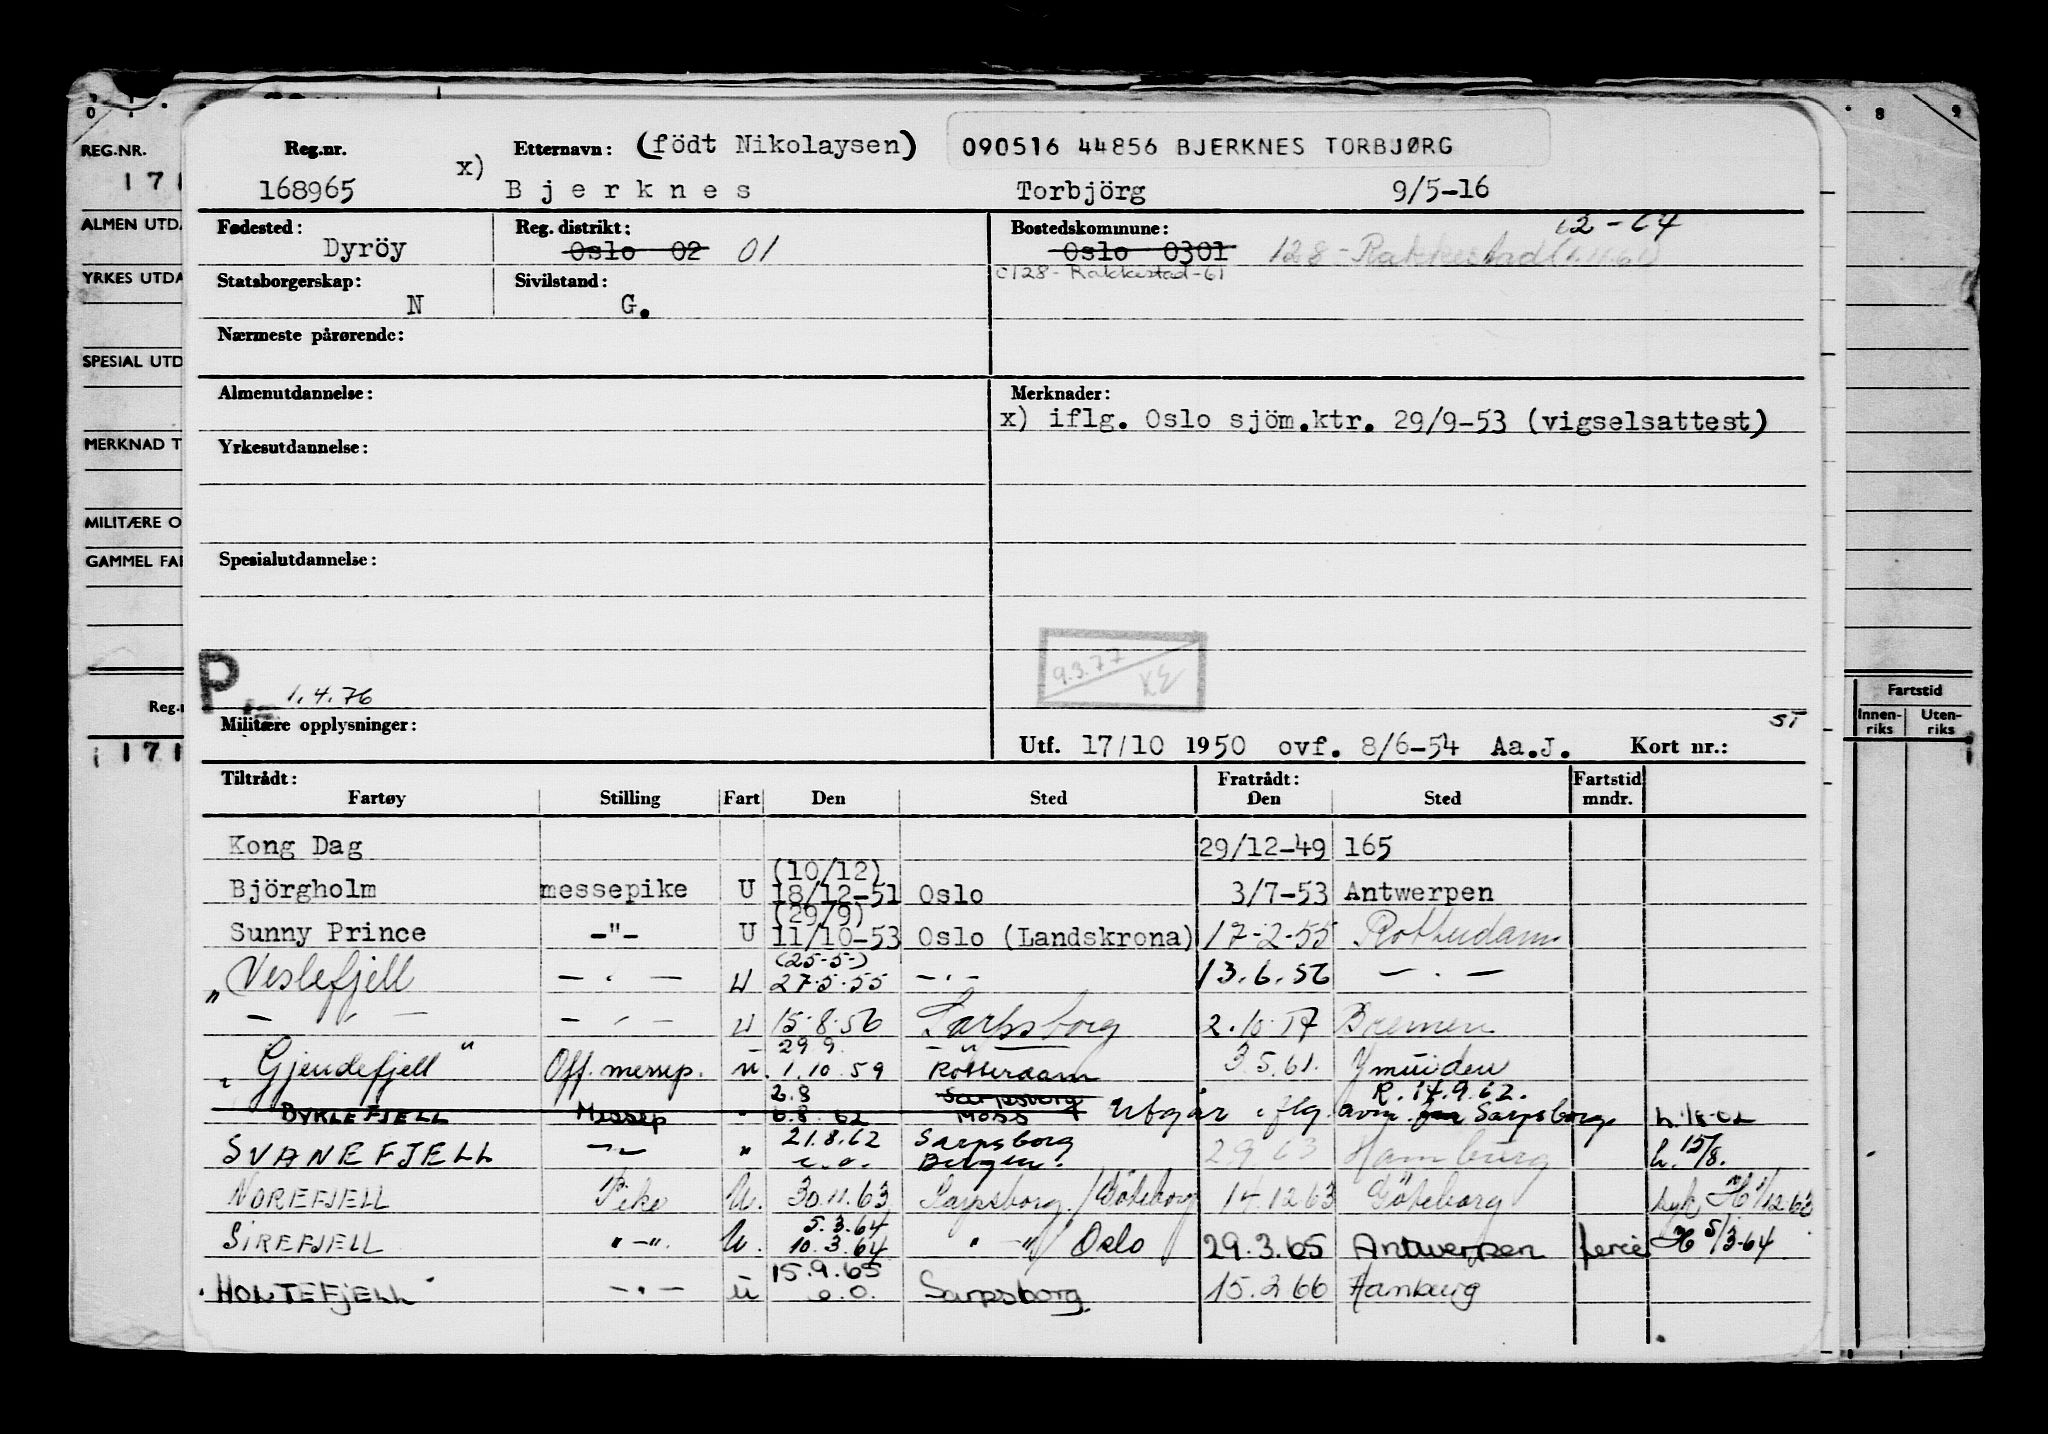 REG.NR.
171
ALMEN UTDA
YRKES UTDA
SPESIAL UTD
MERKNAD T
MILITÆRE O
GAMMEL FAR
Reg.n
171
Reg.nr. x) Etternavn: (födt Nikolaysen) 090516 44856 BJERKNES TORBJØRG
168965 Bjerknes Torbjörg 9/5-16
Fødested: Reg. distrikt: Bostedskommune: 12-64
Dyröy Oslo 02 01 Oslo 0301 128-Rakkestad (1.11.61)
Statsborgerskap: Sivilstand: 0128-Rakkestad-61
N G.
Nærmeste pårørende:
Almenutdannelse: Merknader:
x) iflg. Oslo sjöm.ktr. 29/9-53 (vigselsattest)
Yrkesutdannelse:
Spesialutdannelse:
9.3.77
P 1.4.76
Militære opplysninger: ST
Utf. 17/10 1950 ovf. 8/6-54 Aa.J. Kort nr.:
Tiltrådt: Fratrådt: Fartstid
Fartøy Stilling Fart Den Sted Den Sted mndr.
Kong Dag 29/12-49 165
(10/12)
Björgholm messepike U 18/12-51 Oslo 3/7-53 Antwerpen
(29/9)
Sunny Prince -"- U 11/10-53 Oslo (Landskrona) 17-2-55 Rotterdam
(25-5-)
"Veslefjell — " — U 27.5.55 — " — 13.6.56 — " —
— " — — " — U 15.8.56 Sarpsborg 2.10.57 Bremen
29 9.
"Gjendefjell" Off. messep. u. 1.10.59 Rotterdam 3.5.61. Ymuiden
2.8 Sarpsborg R. 14.9.62.
BYKLEFJELL Messep " 6.8.62 Moss Utgår iflg. avm. fra Sarpsborg h. 1/8-62
21.8.62 Sarpsborg
SVANEFJELL — " — " e.o. Bergen. 2.9.63 Hamburg h. 15/8.
NOREFJELL Pike U. 30.11.63 Sarpsborg/Göteborg 14.12.63 Göteborg syk H 1/12.63
5.3.64
SIREFJELL " — ". U. 10.3.64 " — "/Oslo 29.3.65 Antwerpen ferie H 5/3-64
15.9.65
"HOLTEFJELL" — " — u e.o. Sarpsborg 15.2.66 Hamburg
8 9
Fartstid
Innen-riks Uten-riks